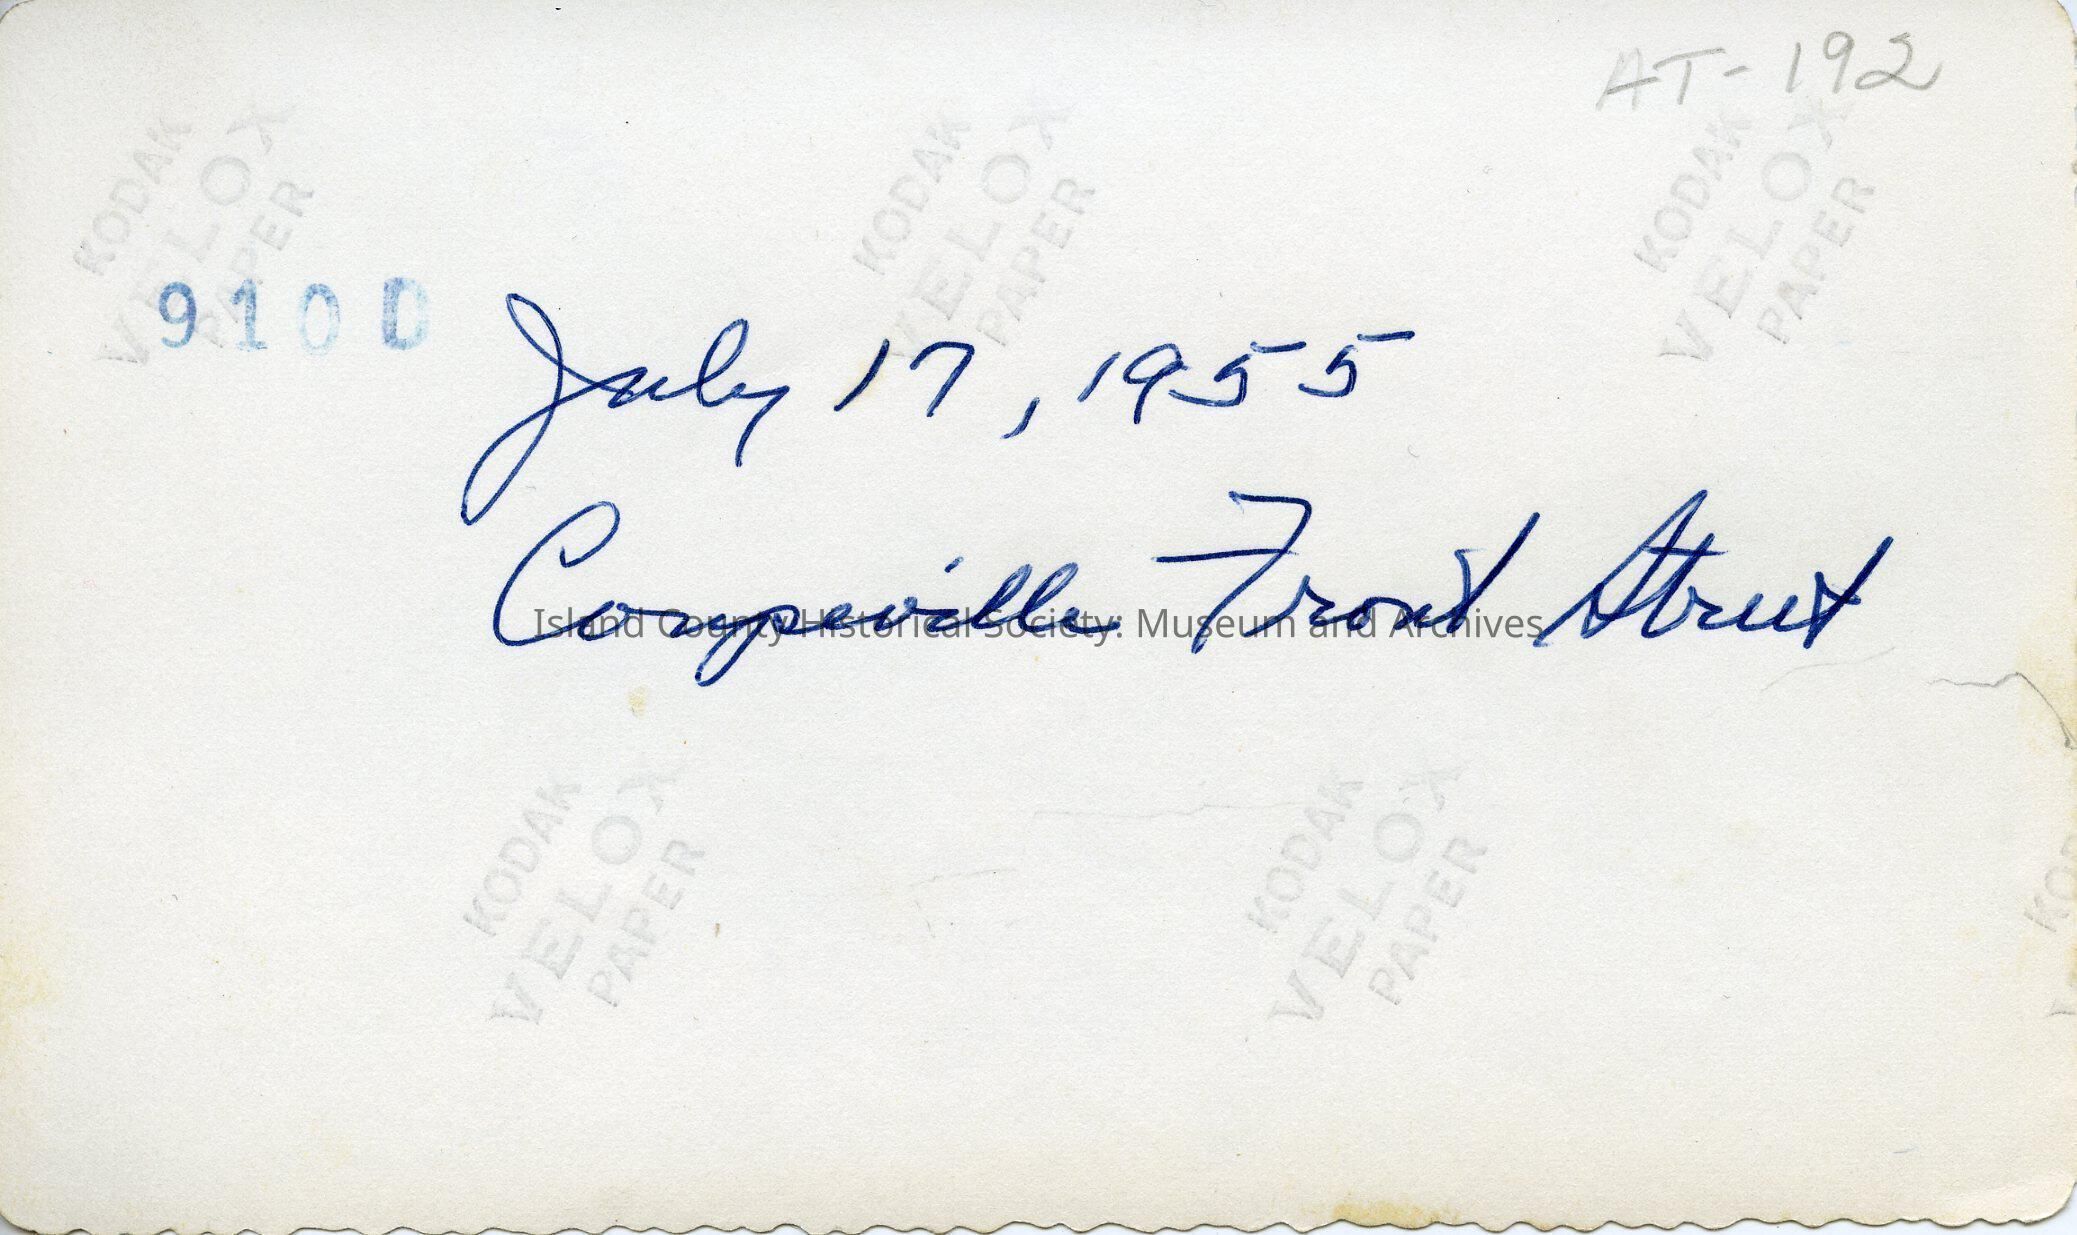 AT-192
KODAK VELOX PAPER
KODAK VELOX PAPER
KODAK VELOX PAPER
9100
July 17, 1955
Coupeville Front Street
Island County Historical Society: Museum and Archives
KODAK VELOX PAPER
KODAK VELOX PAPER
KO